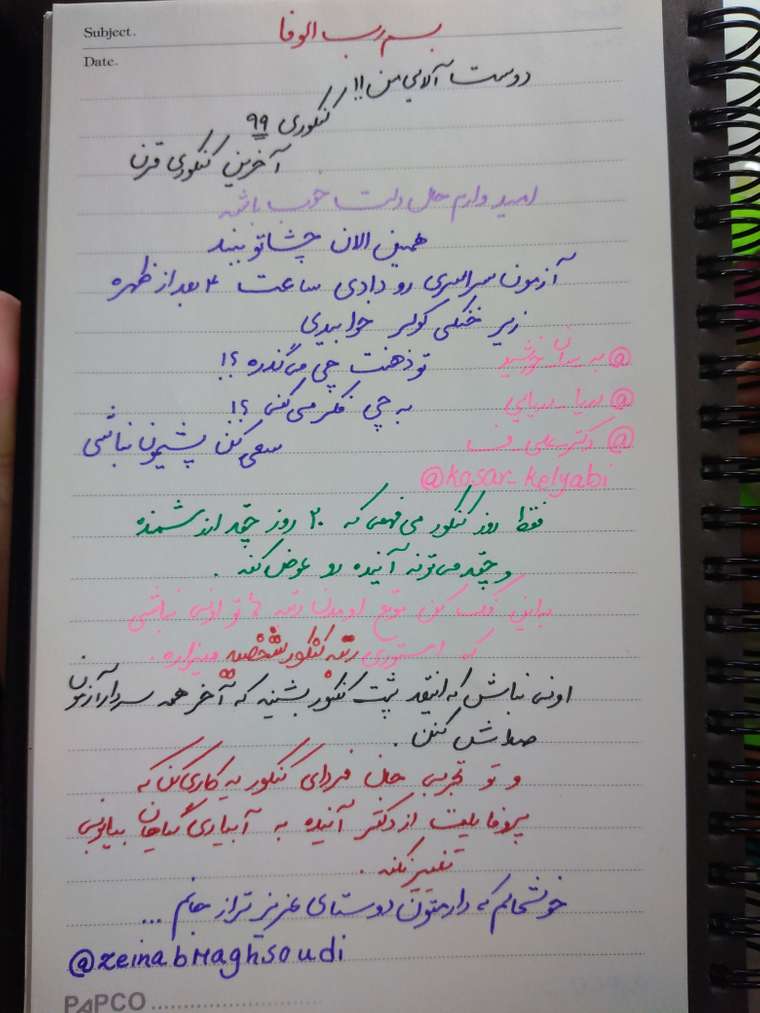 Subject.
بسم رب الوفا
Date.
دوست آلایی من!!
کنکوری ۹۹
آخرین کنکوری قرن
امیدوارم حال دلت خوب باشه
همین الان چشاتو ببند
آزمون سراسری رو دادی ساعت ۴ بعد از ظهره
زیر خنکی کولر خوابیدی
تو ذهنت چی میگذره؟!
@ به خورشید
به چی فکر می‌کنی؟!
@ دریا
سعی کن پشیمون نباشی
@ دکتر علی
@kosar-kelyabi
فقط روز کنکور می‌فهمی که ۲۰ روز چقد ارزشمنده
و چقد می‌تونه آینده رو عوض کنه.
به این فکر کن موقع اومدن رتبه ها تو اونی نباشی
که استوری رتبه کنکور شخصیه میزاره.
اونی نباش که اینقد پشت کنکور بشینه که آخر همه سردار آزمون
صداش کنن.
و تو تجربی حال فردای کنکور یه کاری کن که
پروفایلت از دکتر آینده به آبیاری گیاهان بیابونی
تغییر نکنه.
خوشحالم که دارمتون دوستای عزیزتر از جانم ...
@zeinabMaghsoudi
PAPCO